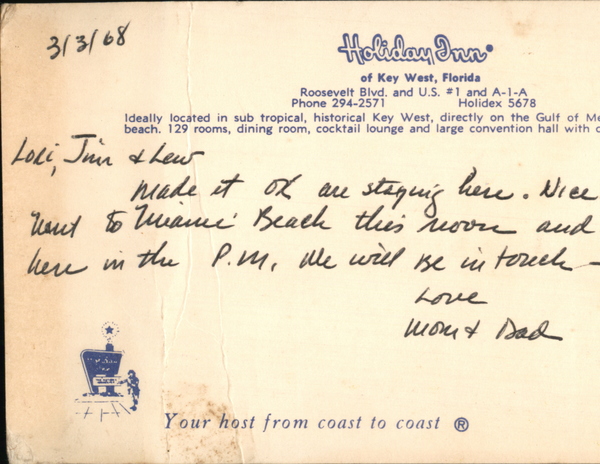 3/3/68
Holiday Inn®
of Key West, Florida
Roosevelt Blvd. and U.S. #1 and A-1-A
Phone 294-2571 Holidex 5678
Ideally located in sub tropical, historical Key West, directly on the Gulf of Me
beach. 129 rooms, dining room, cocktail lounge and large convention hall with
Lori, Jim & Lew
Made it OK are staying here. Nice
Went to Miami Beach this noon and
here in the P.M. We will be in touch —
Love
Mom & Dad
Your host from coast to coast ®